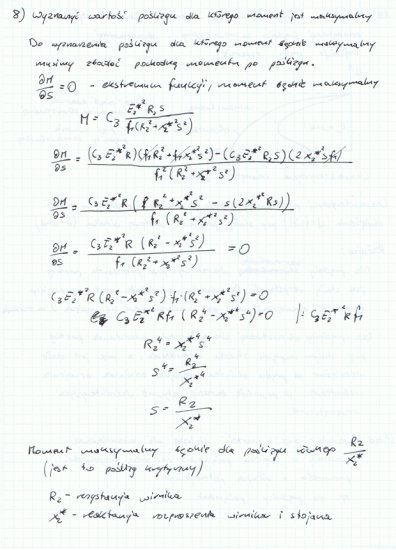 8) Wyznaczyć wartość poślizgu dla którego moment jest maksymalny
Do wyznaczenia poślizgu dla którego moment będzie maksymalny
musimy zbadać pochodną momentu po poślizgu.
∂M/∂S = 0 - ekstremum funkcji, moment będzie maksymalny
M = C₃ E₂*² R₂ S / f₁(R₂² + x₂*² S²)
∂M/∂S = (C₃ E₂*² R)(f₁ R₂² + f₁ x₂*² S²) - (C₃ E₂*² R₂ S)(2 x₂*² S f₁) / f₁²(R₂² + x₂*² S²)
∂M/∂S = C₃ E₂*² R (R₂² + x₂*² S² - S(2 x₂*² R S)) / f₁(R₂² + x₂*² S²)
∂M/∂S = C₃ E₂*² R (R₂² - x₂*² S²) / f₁(R₂² + x₂*² S²) = 0
C₃ E₂*² R (R₂² - x₂*² S²) f₁ · (R₂² + x₂*² S²) = 0
C₃ E₂*² R f₁ (R₂⁴ - x₂*⁴ S⁴) = 0 /: C₃ E₂*² R f₁
R₂⁴ = x₂*⁴ S⁴
S⁴ = R₂⁴ / x₂*⁴
S = R₂ / x₂*
Moment maksymalny będzie dla poślizgu równego R₂ / x₂*
(jest to poślizg krytyczny)
R₂ - rezystancja wirnika
x₂* - reaktancja rozproszenia wirnika i stojana